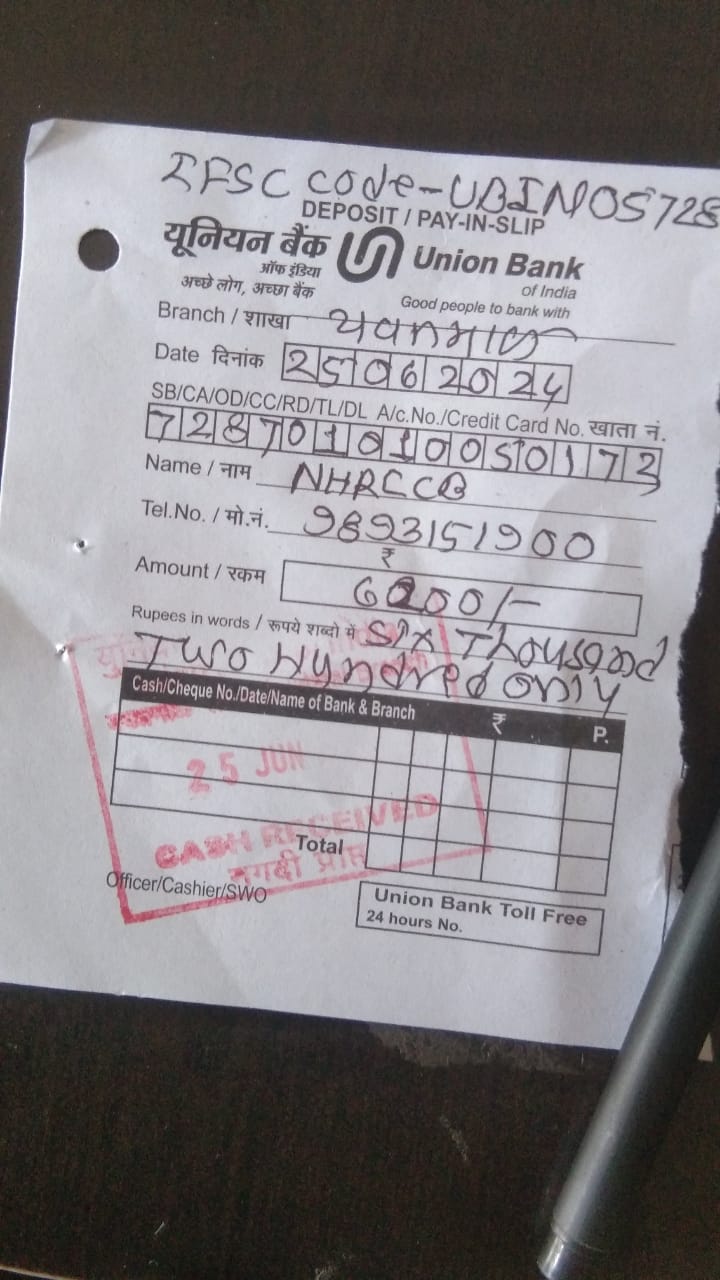 IFSC code-UBIN05728
DEPOSIT / PAY-IN-SLIP
यूनियन बैंक Union Bank
ऑफ इंडिया of India
अच्छे लोग, अच्छा बैंक Good people to bank with
Branch / शाखा यवतमाळ
Date दिनांक 25062024
SB/CA/OD/CC/RD/TL/DL A/c.No./Credit Card No. खाता नं.
728701010050172
Name / नाम NHRCCB
Tel.No. / मो.नं. 9893151900
₹
Amount / रकम 6200/-
Rupees in words / रूपये शब्दो में Six Thousand
Two Hundred only
Cash/Cheque No./Date/Name of Bank & Branch ₹ P.
25 JUN
CASH RECEIVED
Total
नगदी प्राप्त
Officer/Cashier/SWO
Union Bank Toll Free
24 hours No.